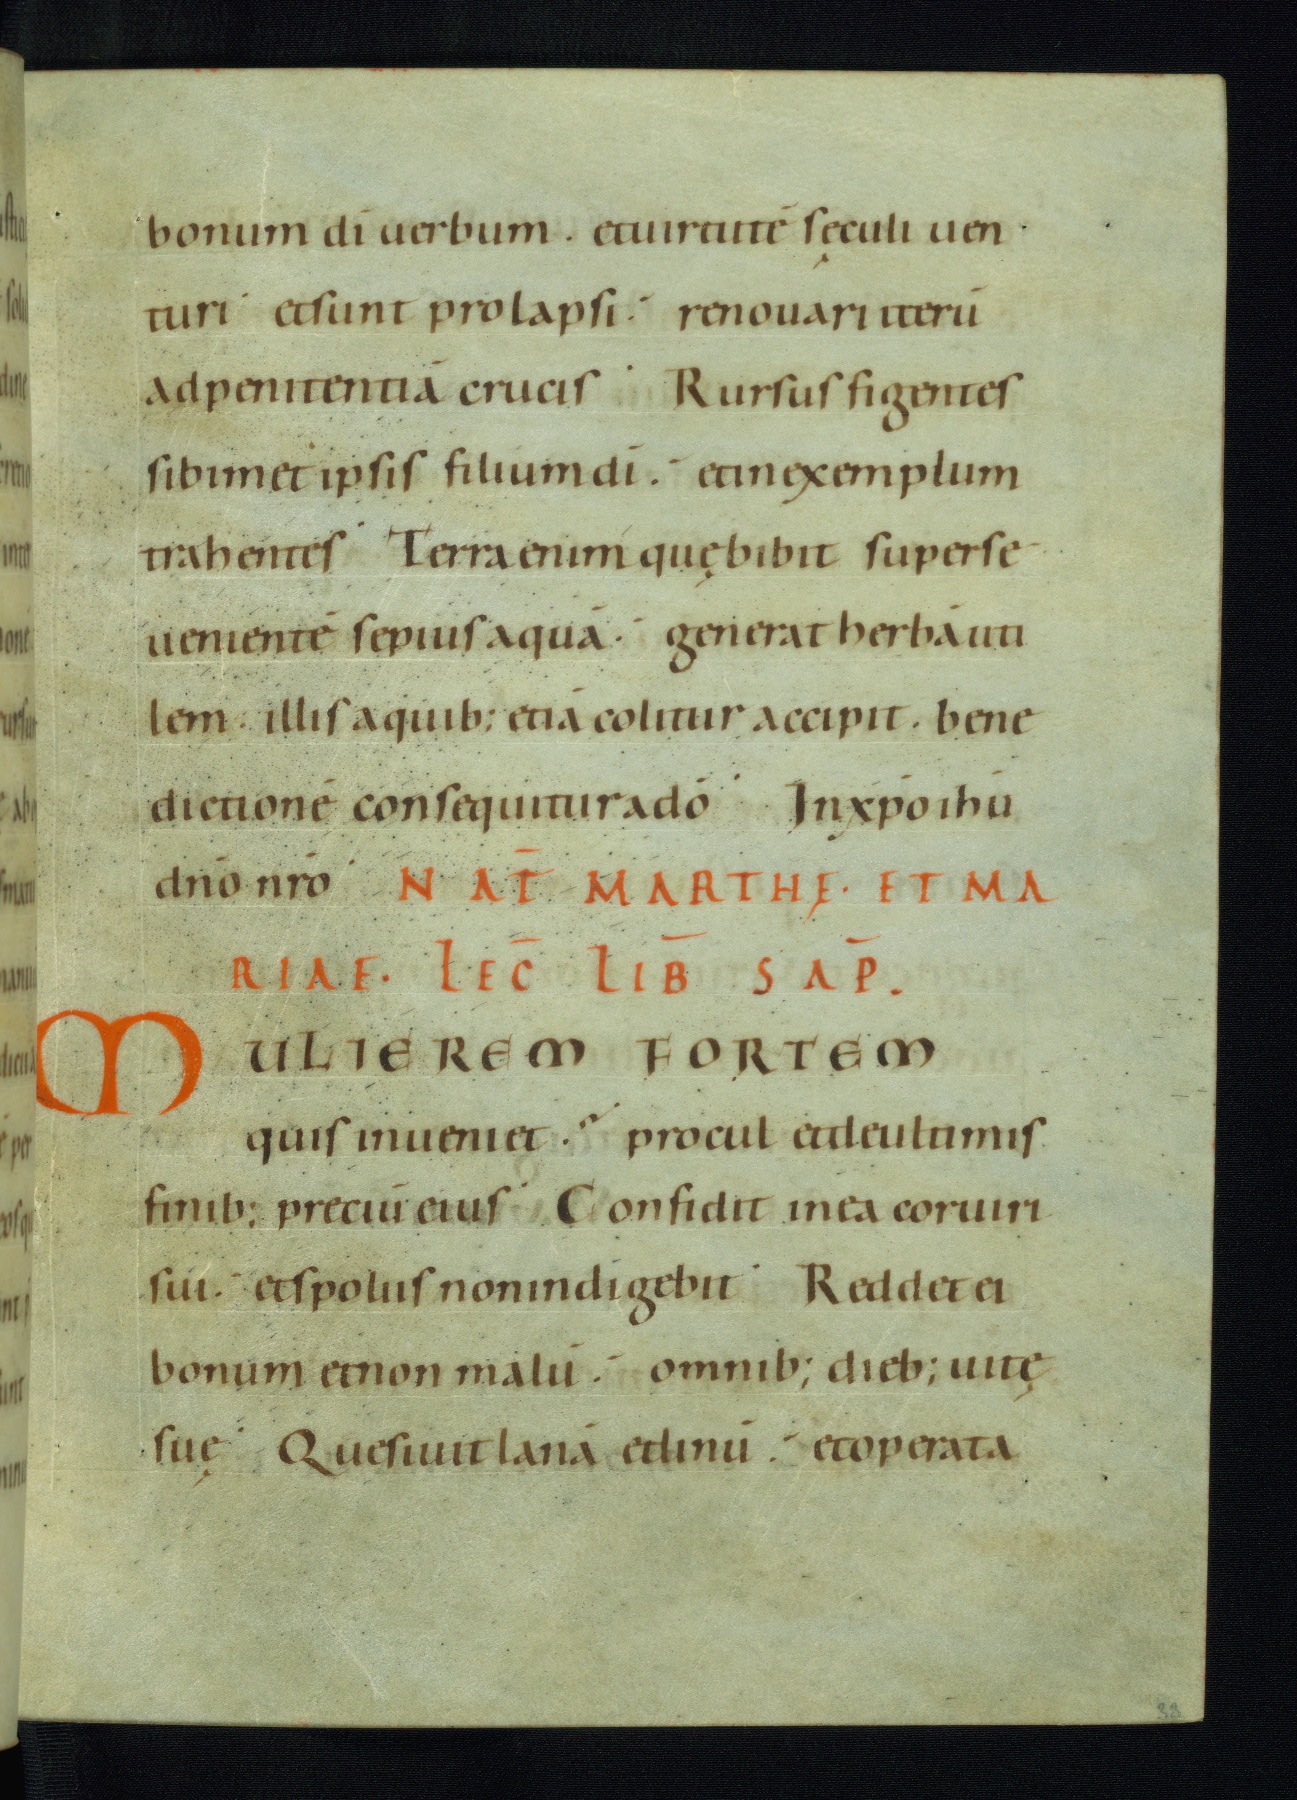 bonum dī uerbum . etuirtutē sęculi uen
turi· etsunt prolapsi.· renouari iterū
adpenitentiā crucis· Rursus figentes
sibimet ipsis filium dī.· etinexemplum
trahentes· Terra enim quębibit superse
uenientē sepius aquā.· generat herbā uti
lem . illis aquib; etiā colitur accipit . bene
dictionē consequitur adō· Inxp̄o ihū
dn̄o nr̄o· NAT̄ MARTHĘ· ET MA
RIAE· LEC̄ LIB̄ SAP̄.
MULIEREM FORTEM
quis inueniet .· procul etdeultimis
finib; preciū eius· Confidit inea coruiri
sui.· etspoliis nonindigebit· Reddet ei
bonum etnon malū.· omnib; dieb; uitę
suę· Quesiuit lanā etlinū.· etoperata